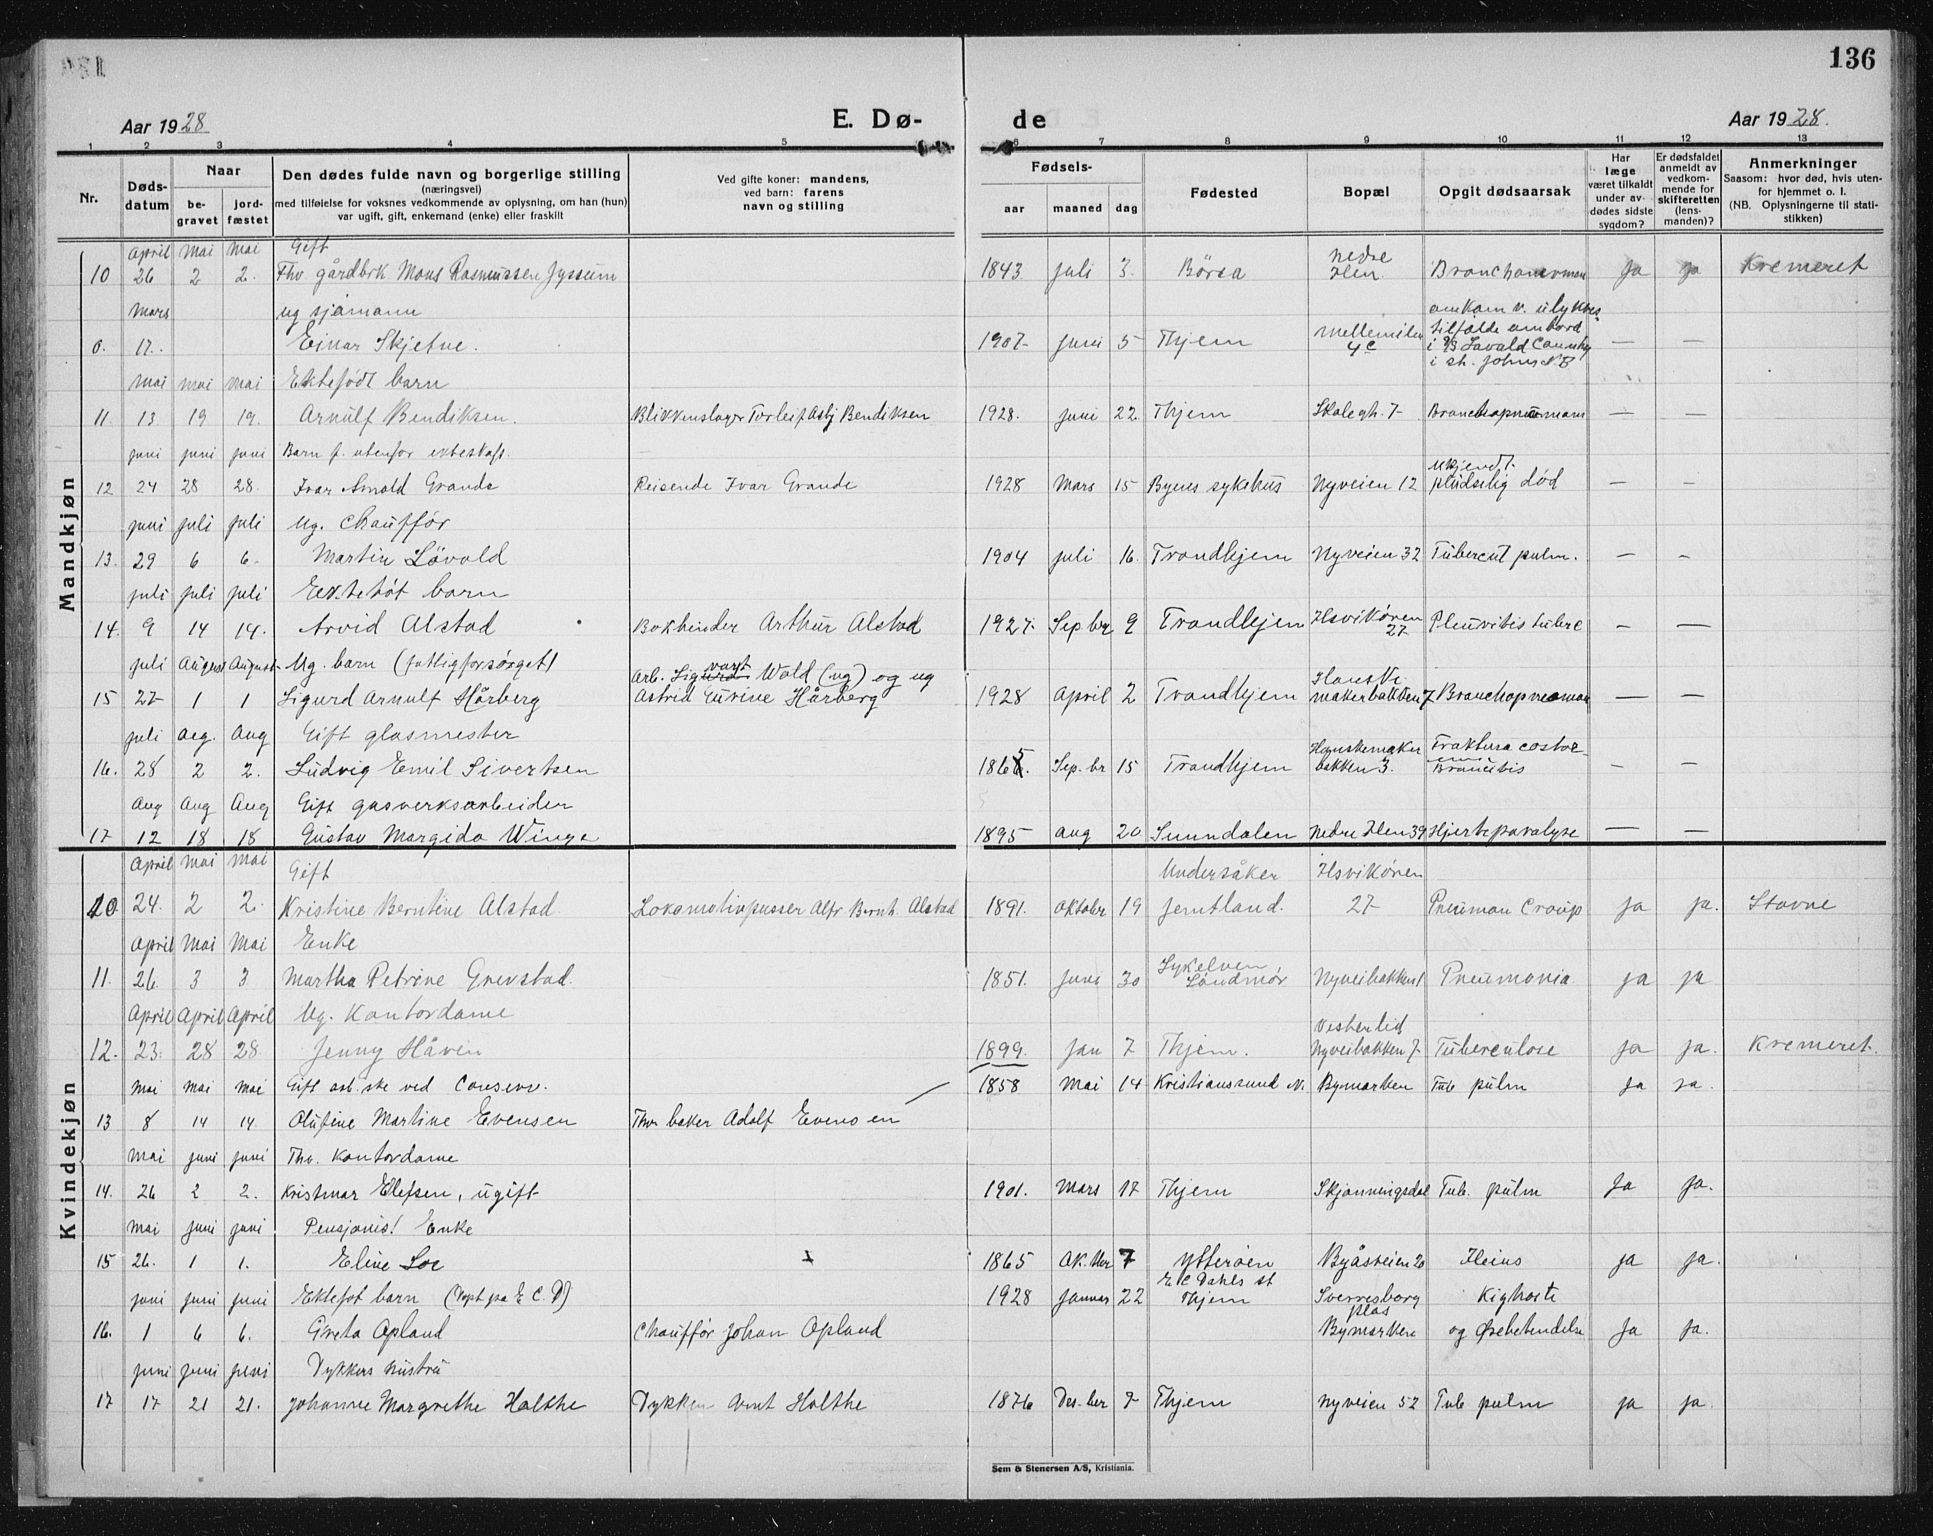 136
Aar 1928
E. Dø-
de
Aar 1928.
1 2 3 4 5 6 7 8 9 10 11 12 13
Nr.
Døds-
datum
Naar
be-
gravet
jord-
fæstet
Den dødes fulde navn og borgerlige stilling
(næringsvei)
med tilføielse for voksnes vedkommende av oplysning, om han (hun)
var ugift, gift, enkemand (enke) eller fraskilt
Ved gifte koner: mandens,
ved barn: farens
navn og stilling
Fødsels-
aar maaned dag
Fødested
Bopæl
Opgit dødsaarsak
Har
læge
været tilkaldt
under av-
dødes sidste
sygdom?
Er dødsfaldet
anmeldt av
vedkom-
mende for
skifteretten
(lens-
manden)?
Anmerkninger
Saasom: hvor død, hvis uten-
for hjemmet o. l.
(NB. Oplysningerne til stati-
stikken)
Mandkjøn
April Mai Mai Gift
10 26 2 2. Fhv gårdbrk Mons Rasmussen Jyssum 1843 Juli 3. Börsa Nedre Ilen Ja Ja Kremeret
Mars ug sjömann
0. 17. Einar Skjetne. 1907 Juni 5 Thjem Mellemilen 4c omkom v. ulykkes
tilfälde ombord
i St. Johns
Mai Mai Mai Ektefødt barn
11. 13 19 19. Arnulf Bendiksen. Blikkenslager Torleif Asbj Bendiksen 1928. Juni 22 Thjem 7 — —
Juni Juni Juni Barn f. utenfor ekteskap.
12 24 28 28. Ivar Arnold Grande Reisende Ivar Grande 1928 Mars 15 Byens sykehus Nyveien 12 Ukjendt.
pludselig död — —
Juni Juli Juli Ug. Chauffør
13. 29 6 6. Martin Lövold 1904 Juli 16. Trondhjem Nyveien 32 Tubercul pulm. — —
Juli Juli Juli Ektefôt barn
14. 9 14 14. Arvid Alstad Bokbinder Arthur Alstad 1927. Sepbr 9 Trondhjem Ilsvikøren 27 Pleuritis tuberc — —
Juli August August Ug. barn (fatligforsørget)
15 27 1 1 Sigurd Arnulf Hårberg Arb. Wold (ug) og ug
Astrid Eurine Hårberg 1928 April 2 Trondhjem Hanske
makerbakken 7 Bronchopneumon — —
Juli Aug. Aug Gift glasmester
16. 28 2 2. Ludvig Emil Sivertsen 1865. Sep.br 15 Trondhjem Hanskemaker
bakken 3. Fraktura costar — —
Aug Aug Aug Gift gasverksarbeider
17 12 18 18 Gustav Margido Winge 1895 Aug 20 Sunndalen Nedre Ilen 39 Hjerteparalyse — —
Kvindekjøn
April Mai Mai Gift Undersåker Ilsvikøren
10 24. 2 2. Kristine Berntine Alstad Lokomotivpusser Alfr Bernh. Alstad 1891. Oktober 19 Jemtland. 27 Pneumon Croup Ja Ja. Stavne
April Mai Mai Enke
11. 26. 3 3. Martha Petrine Grevstad. 1851. Juni 30 Sykelven
Söndmör Nyveibakken 1 Pneumonia Ja Ja
April April April Ug. Kontordame
12. 23. 28 28. Jenny Håven 1899. Jan 7 Thjem. Vesterlid
Nyveibakken 7 Tuberculose Ja Ja. Kremeret.
Mai Mai Mai Gift arb.ske ved Conserv. 1858 Mai 14 Kristianssund N. Bymarken Tub pulm Ja Ja.
13 8 14 14. Olufine Martine Evensen Fhv baker Adolf Evensen
Mai Juni Juni Fhv. Kontordame
14. 26 2 2. Kristmar Elefsen, ugift 1901. Mars 17 Thjem Skjønningsdal Tub. pulm Ja Ja.
Mai Juni Juni Pensjonis! Enke
15 26. 1 1. Eline Loe x 1865 Ok.tber 7 Ytterøen Byåsveien 20 Ileius Ja Ja.
Juni Juni Juni Ektefot barn (Døpt på E. C. D) 1928 Januar 22 E C Dahls st
Thjem Sverresborg
plas Kighoste
16. 1 6 6. Greta Opland Chauffør Johan Opland Bymarken og Ørebetendelse Ja Ja.
Juni Juni Juni Dykkers hustru
17 17 21 21. Johanne Margrethe Holthe Dykker Arnt Holthe 1876 Des.ber 7 Thjem Nyveien 52 Tub pulm Ja Ja.
Sem & Stenersen A/S, Kristiania.